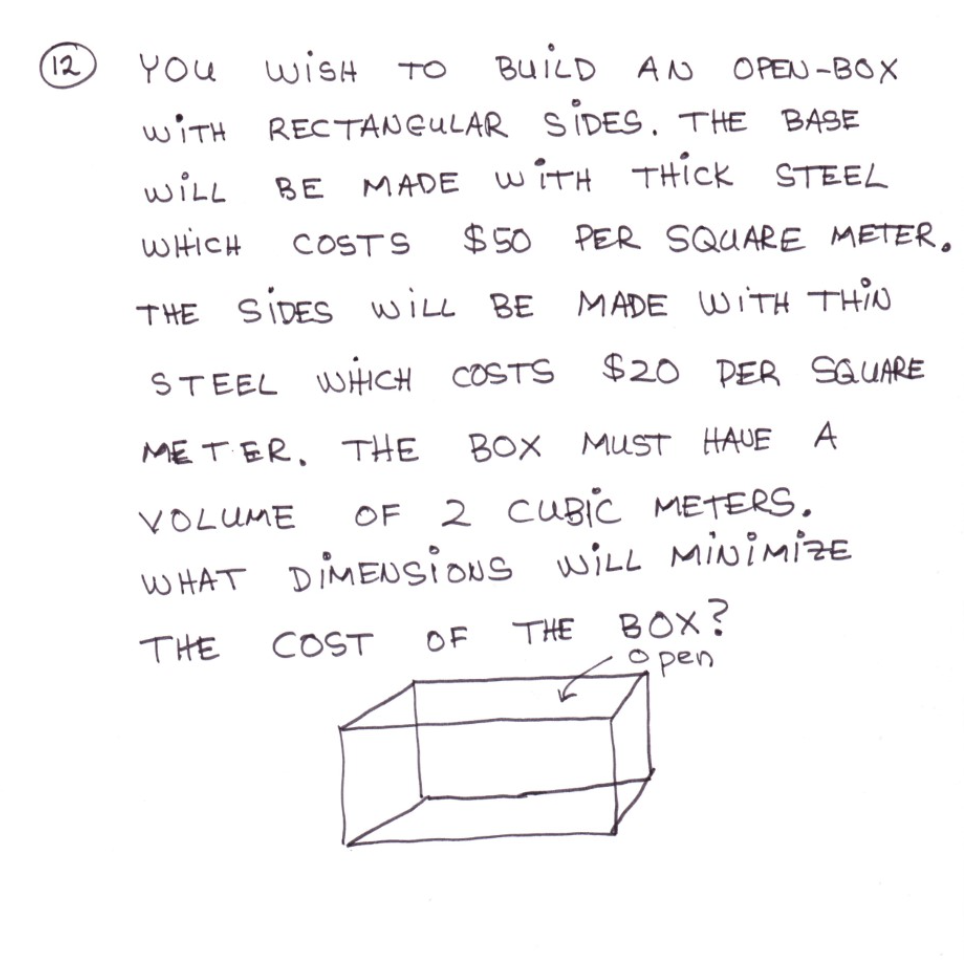 12 YOU WISH TO BUILD AN OPEN-BOX
WITH RECTANGULAR SIDES. THE BASE
WILL BE MADE WITH THICK STEEL
WHICH COSTS $50 PER SQUARE METER.
THE SIDES WILL BE MADE WITH THIN
STEEL WHICH COSTS $20 PER SQUARE
METER. THE BOX MUST HAVE A
VOLUME OF 2 CUBIC METERS.
WHAT DIMENSIONS WILL MINIMIZE
THE COST OF THE BOX?
open